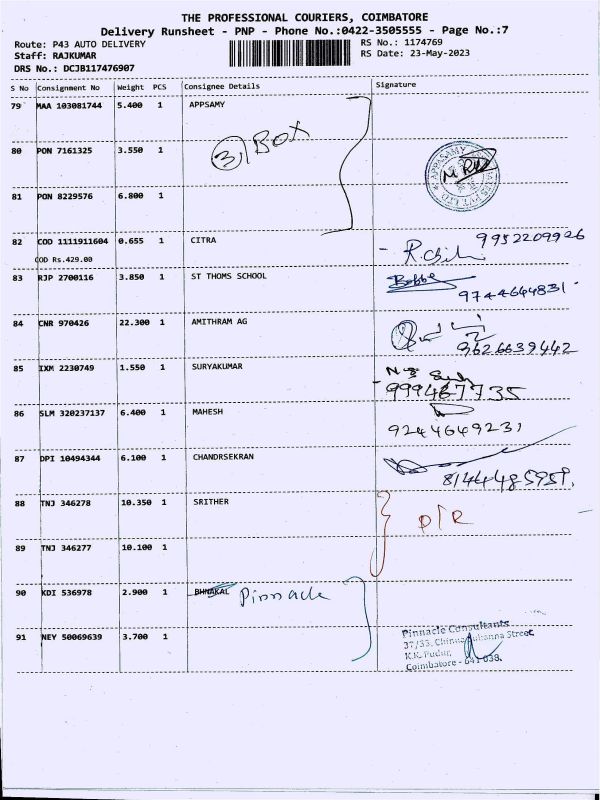 THE PROFESSIONAL COURIERS, COIMBATORE
Delivery Runsheet - PNP - Phone No.:0422-3505555 - Page No.:7
Route: P43 AUTO DELIVERY
RS No.: 1174769
Staff: RAJKUMAR
RS Date: 23-May-2023
DRS No.: DCJB117476907
S No Consignment No Weight PCS Consignee Details Signature
79 MAA 103081744 5.400 1 APPSAMY
3 BOX
80 PON 7161325 3.550 1
APPASAMY
81 PON 8229576 6.800 1
82 COD 1111911604 0.655 1 CITRA 9952209926
COD Rs.429.00
83 RJP 2700116 3.850 1 ST THOMS SCHOOL
9744644831
84 CNR 970426 22.300 1 AMITHRAM AG
9626639442
85 IXM 2230749 1.550 1 SURYAKUMAR
9994677735
86 SLM 320237137 6.400 1 MAHESH
9244649231
87 DPI 10494344 6.100 1 CHANDRSEKRAN
8144485959
88 TNJ 346278 10.350 1 SRITHER
D/R
89 TNJ 346277 10.100 1
90 KDI 536978 2.900 1 BHNAKAL Pinnacle
91 NEY 50069639 3.700 1
Pinnacle Consultants
37/33, Street
K.K. Pudur,
Coimbatore - 641 038.